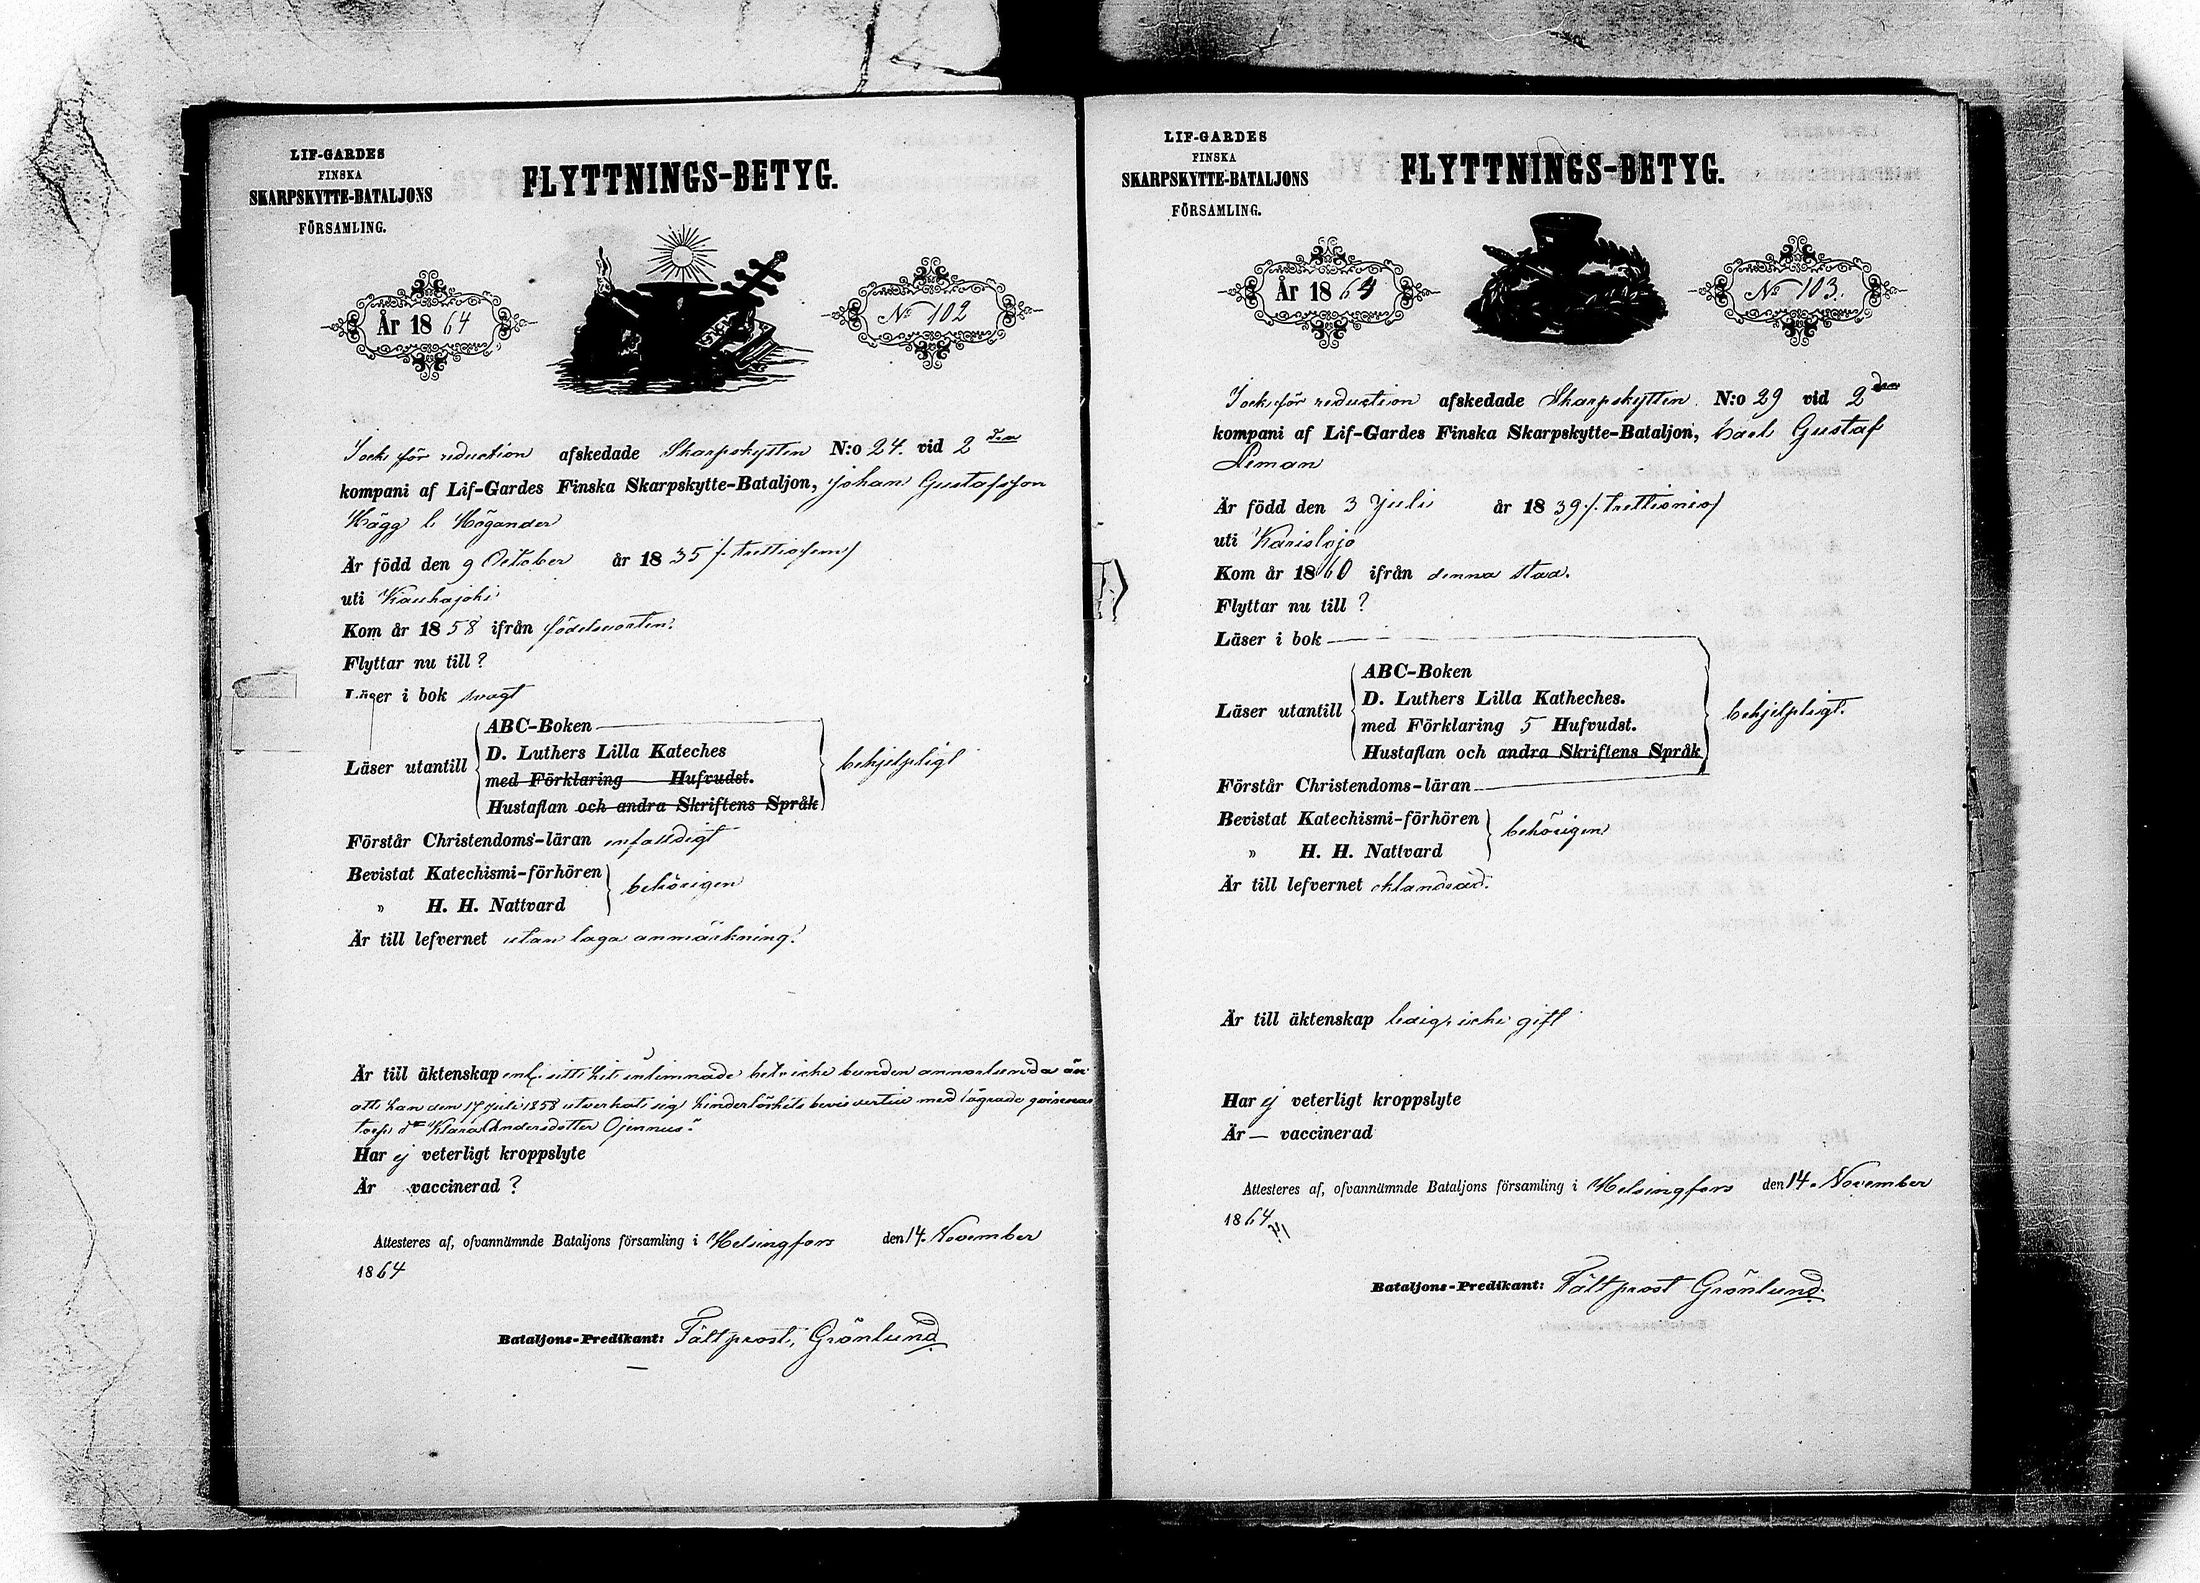 LIF-GARDES
FINSKA
SKARPSKYTTE-BATALJONS
FÖRSAMLING.
FLYTTNINGS-BETYG.
År 1864
No 102
för reduction afskedade Skarpskytten N:o 24. vid 2 dra
kompani af Lif-Gardes Finska Skarpskytte-Bataljon, Johan Gustafsson
Hägg l. Högander
Är född den 9 October år 1835 /:trettiofem/
uti Kauhajoki
Kom år 1858 ifrån födelseorten.
Flyttar nu till ?
Läser i bok svagt
Läser utantill
ABC-Boken
D. Luthers Lilla Kateches
med Förklaring Hufvudst.
Hustaflan och andra Skriftens Språk
behjelpligt
Förstår Christendoms-läran enfaldigt
Bevistat Katechismi-förhören
» H. H. Nattvard
behörigen
Är till lefvernet utan laga anmärkning.
Är till äktenskap enl. sitt hit inlemnade bet. icke bunden annorlunda än
att han den 17 Juli 1858 utverkat sig hinderlöshets bevis med
Klara Andersdotter Ojennus.
Har ej veterligt kroppslyte
Är vaccinerad ?
Attesteres af, ofvannämnde Bataljons församling i Helsingfors den 14. November
1864
Bataljons-Predikant: Fältprost, Grönlund.
LIF-GARDES
FINSKA
SKARPSKYTTE-BATALJONS
FÖRSAMLING.
FLYTTNINGS-BETYG.
År 1864
No 103.
för reduction afskedade Skarpskytten N:o 29 vid 2 dra
kompani af Lif-Gardes Finska Skarpskytte-Bataljon, Carl Gustaf
Leman
Är född den 3 Juli år 1839 /:trettionio/
uti Karislojo
Kom år 1860 ifrån denna stad.
Flyttar nu till ?
Läser i bok
Läser utantill
ABC-Boken
D. Luthers Lilla Katheches.
med Förklaring 5 Hufvudst.
Hustaflan och andra Skriftens Språk
behjelpligt.
Förstår Christendoms-läran
Bevistat Katechismi-förhören
» H. H. Nattvard
behörigen
Är till lefvernet oklandrad.
Är till äktenskap ledig, icke gift
Har ej veterligt kroppslyte
Är — vaccinerad
Attesteres af, ofvannämnde Bataljons församling i Helsingfors den 14. November
1864
Bataljons-Predikant: Fältprost Grönlund.